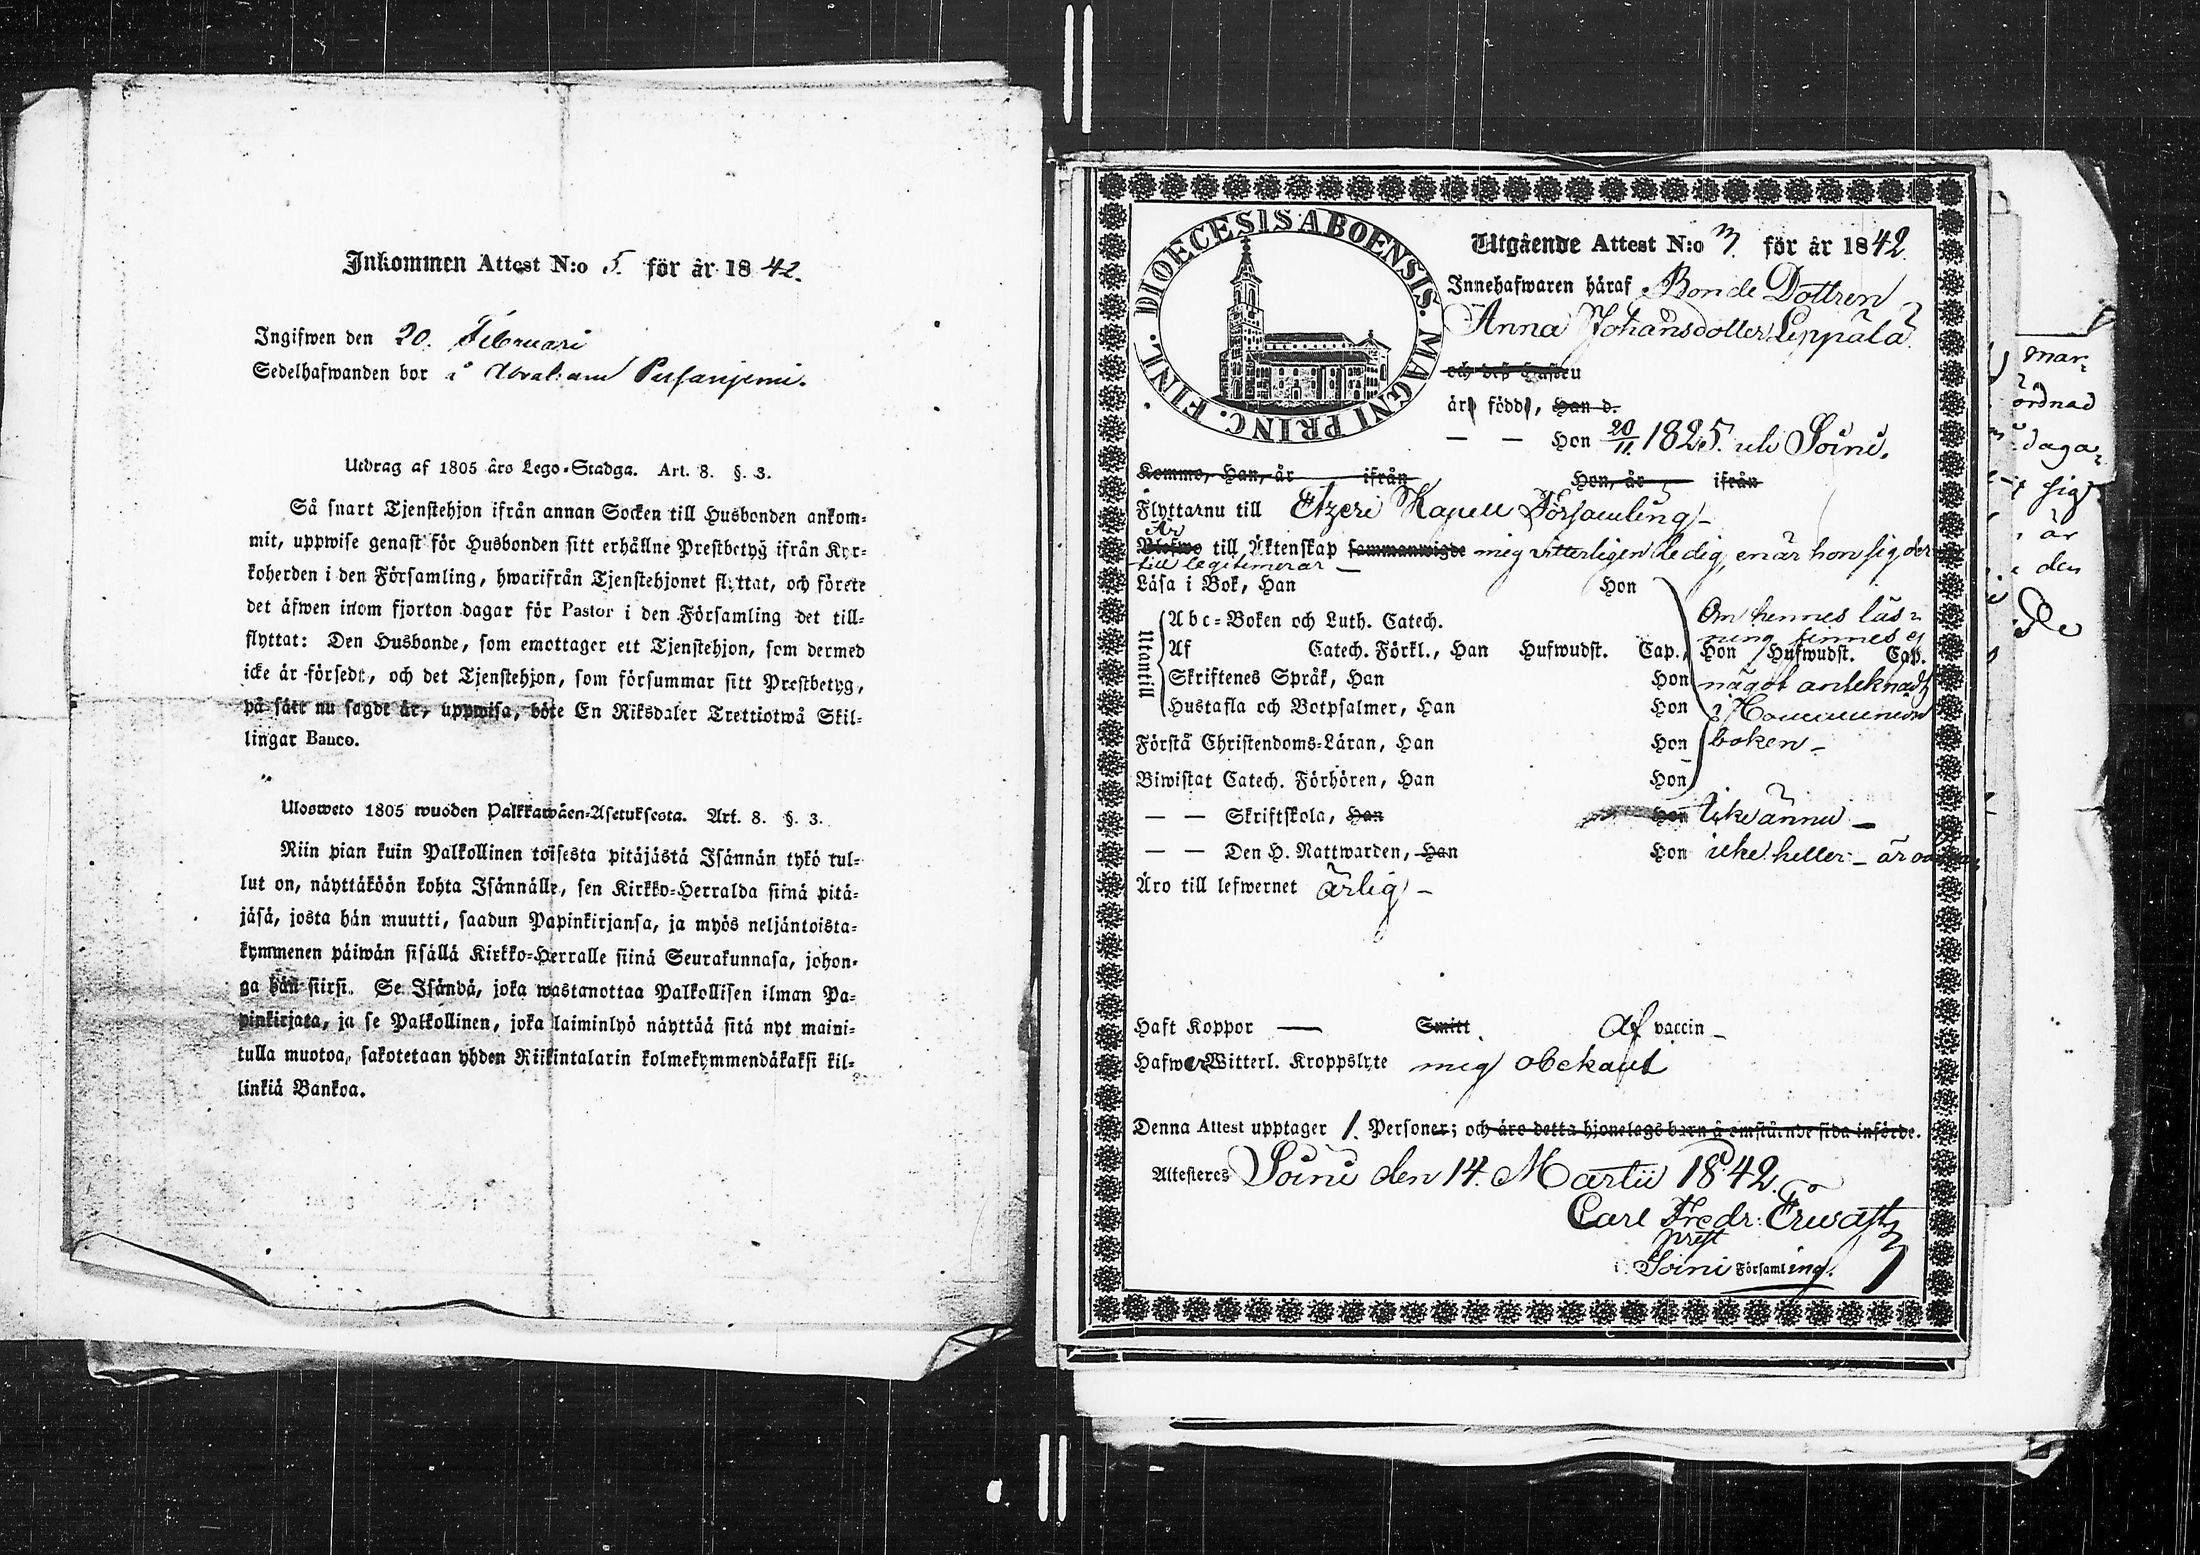 Inkommen Attest N:o 5. för år 1842.
Ingifwen den 20. Februari
Sedelhafwanden bor i Abraham
Utdrag af 1805 års Lego-Stadga. Art. 8. §. 3.
Så snart Tjenstehjon ifrån annan Socken till Husbonden ankom-
mit, uppwise genast för Husbonden sitt erhållne Prestbetyg ifrån Kyr-
koherden i den Församling, hwarifrån Tjenstehjonet flyttat, och förete
det äfwen inom fjorton dagar för Pastor i den Församling det till-
flyttat: Den Husbonde, som emottager ett Tjenstehjon, som dermed
icke är försedt, och det Tjenstehjon, som försummar sitt Prestbetyg,
på sätt nu sagdt är, uppwisa, böte En Riksdaler Trettiotwå Skil-
lingar Banco.
Ulosweto 1805 wuoden Palkkawäen-Asetuksesta. Art. 8. §. 3.
Niin pian kuin Palkollinen toisesta pitäjästä Isännän tykö tul-
lut on, näyttäköön kohta Isännälle, sen Kirkko-Herralda siinä pitä-
jäsä, josta hän muutti, saadun Papinkirjansa, ja myös neljäntoista-
kymmenen päiwän sisällä Kirkko-Herralle siinä Seurakunnasa, johon-
ga hän siirsi. Se Isändä, joka wastanottaa Palkollisen ilman Pa-
pinkirjata, ja se Palkollinen, joka laiminlyö näyttää sitä nyt maini-
tulla muotoa, sakotetaan yhden Riikintalarin kolmekymmendäkaksi kil-
linkiä Bankoa.
DIOECESIS ABOENSIS. MAGNI PRINC. FINL.
Utgående Attest N:o 3. för år 1842.
Innehafwaren häraf Bonde Dottren
Anna Johansdotter Leppälä
och deß Hustru
är född, Han d.
— — Hon 20/11 1825. uti Soini.
Kommo, Han, år ifrån Hon, år ifrån
Flyttar nu till Etzeri Kapell Församling —
Är
Blefwo till Äktenskap sammanwigde mig vitterligen ledig, enär hon sig der
till legitimerar —
Läsa i Bok, Han Hon
Om hennes läs-
Utantill
Abc-Boken och Luth. Catech.
ning finnes ej
Af Catech. Förkl., Han Hufwudst. Cap., Hon Hufwudst. Cap.
Skriftenes Språk, Han Hon något antecknadt
Hustafla och Botpsalmer, Han Hon i Communion
Förstå Christendoms-Läran, Han Hon boken —
Biwistat Catech. Förhören, Han Hon
— — Skriftskola, Han Hon icke ännu —
— — Den H. Nattwarden, Han Hon icke heller — är
Äro till lefwernet ärlig —
Haft Koppor — Smitt Af vaccin —
Hafwer Witterl. Kroppslyte mig obekant
Denna Attest upptager 1. Personer; och äro detta hjonelags barn å omstående sida införde.
Attesteres Soini den 14. Martii 1842.
Carl Fredr: Erwast
prest
i Soini Församling.
mar-
ordnad
daga-
sig
är
den